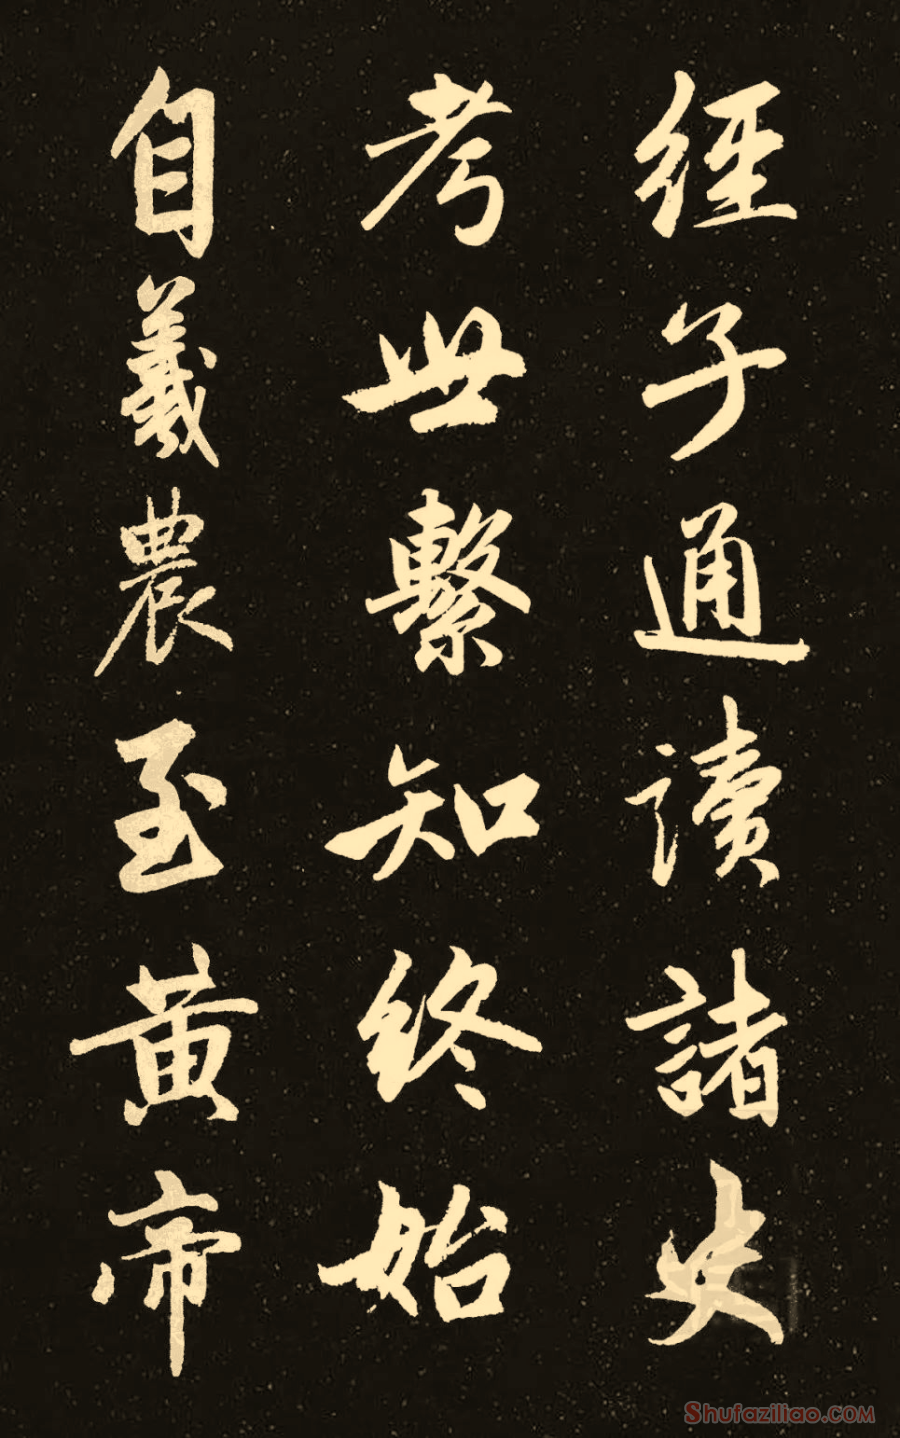 經子通讀諸史
考世繫知終始
自羲農至黄帝
Shufaziliao.COM